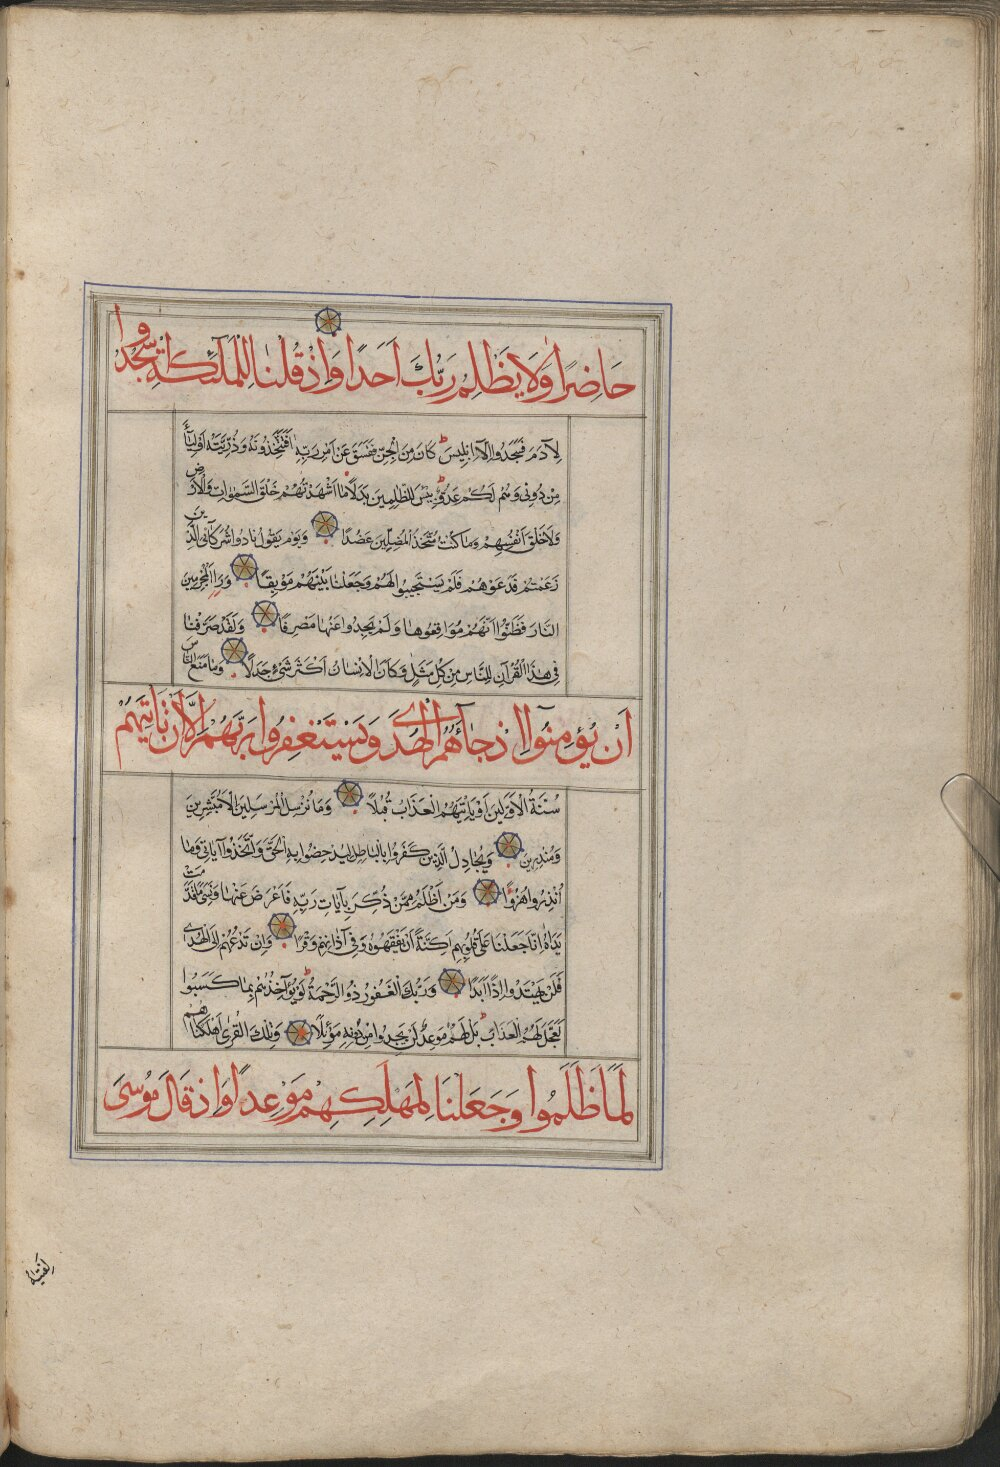 حَاضِرًا وَلَا يَظْلِمُ رَبُّكَ اَحَدًا وَاِذْ قُلْنَا لِلْمَلٰٓئِكَةِ اسْجُدُوا
لِاٰدَمَ فَسَجَدُوا اِلَّا اِبْلِيسَ كَانَ مِنَ الْجِنِّ فَفَسَقَ عَنْ اَمْرِ رَبِّهٖ اَفَتَتَّخِذُونَهُ وَذُرِّيَّتَهُ اَوْلِيَآءَ
مِنْ دُونِى وَهُمْ لَكُمْ عَدُوٌّ بِئْسَ لِلظّٰلِمِينَ بَدَلًا مَا اَشْهَدْتُهُمْ خَلْقَ السَّمٰوَاتِ وَالْاَرْضِ
وَلَا خَلْقَ اَنْفُسِهِمْ وَمَا كُنْتُ مُتَّخِذَ الْمُضِلِّينَ عَضُدًا وَيَوْمَ يَقُولُ نَادُوا شُرَكَآئِىَ الَّذِينَ
زَعَمْتُمْ فَدَعَوْهُمْ فَلَمْ يَسْتَجِيبُوا لَهُمْ وَجَعَلْنَا بَيْنَهُمْ مَوْبِقًا وَرَاَ الْمُجْرِمِينَ
النَّارَ فَظَنُّوا اَنَّهُمْ مُوَاقِعُوهَا وَلَمْ يَجِدُوا عَنْهَا مَصْرِفًا وَلَقَدْ صَرَّفْنَا
فِى هٰذَا الْقُرْاٰنِ لِلنَّاسِ مِنْ كُلِّ مَثَلٍ وَكَانَ الْاِنْسَانُ اَكْثَرَ شَىْءٍ جَدَلًا وَمَا مَنَعَ النَّاسَ
اَنْ يُؤْمِنُوٓا اِذْ جَآءَهُمُ الْهُدٰى وَيَسْتَغْفِرُوا رَبَّهُمْ اِلَّٓا اَنْ تَاْتِيَهُمْ
سُنَّةُ الْاَوَّلِينَ اَوْ يَاْتِيَهُمُ الْعَذَابُ قُبُلًا وَمَا نُرْسِلُ الْمُرْسَلِينَ اِلَّا مُبَشِّرِينَ
وَمُنْذِرِينَ وَيُجَادِلُ الَّذِينَ كَفَرُوا بِالْبَاطِلِ لِيُدْحِضُوا بِهِ الْحَقَّ وَاتَّخَذُوا اٰيَاتِى وَمَا
اُنْذِرُوا هُزُوًا وَمَنْ اَظْلَمُ مِمَّنْ ذُكِّرَ بِاٰيَاتِ رَبِّهٖ فَاَعْرَضَ عَنْهَا وَنَسِىَ مَا قَدَّمَتْ
يَدَاهُ اِنَّا جَعَلْنَا عَلٰى قُلُوبِهِمْ اَكِنَّةً اَنْ يَفْقَهُوهُ وَفِى اٰذَانِهِمْ وَقْرًا وَاِنْ تَدْعُهُمْ اِلَى الْهُدٰى
فَلَنْ يَهْتَدُوا اِذًا اَبَدًا وَرَبُّكَ الْغَفُورُ ذُو الرَّحْمَةِ لَوْ يُؤَاخِذُهُمْ بِمَا كَسَبُوا
لَعَجَّلَ لَهُمُ الْعَذَابَ بَلْ لَهُمْ مَوْعِدٌ لَنْ يَجِدُوا مِنْ دُونِهٖ مَوْئِلًا وَتِلْكَ الْقُرٰى اَهْلَكْنَاهُمْ
لَمَّا ظَلَمُوا وَجَعَلْنَا لِمَهْلِكِهِمْ مَوْعِدًا وَاِذْ قَالَ مُوسٰى
لِفَتٰيهُ